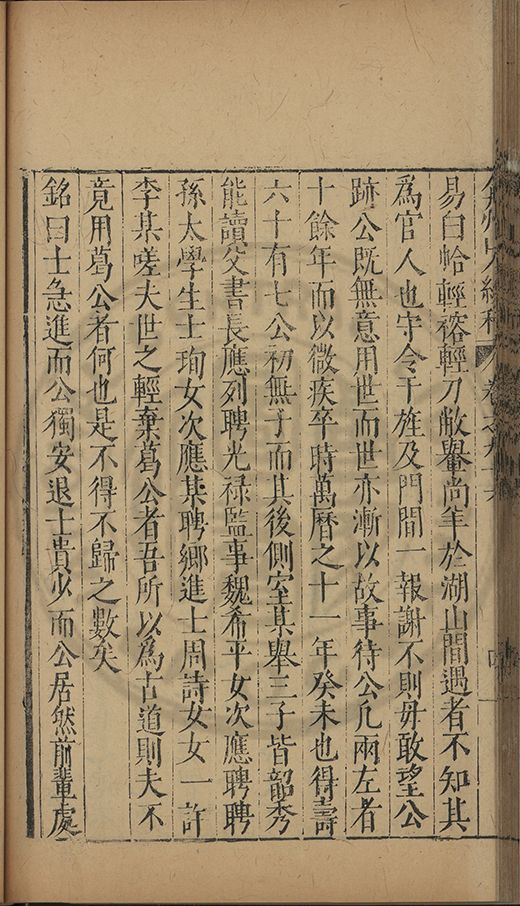 弇州山人續稿 卷之九十六
易白帢輕褣輕刀敝轝尚羊於湖山間遇者不知其
爲官人也守令干旌及門間一報謝不則毋敢望公
跡公既無意用世而世亦漸以故事待公凡兩左者
十餘年而以微疾卒時萬曆之十一年癸未也得壽
六十有七公初無子而其後側室某舉三子皆韶秀
能讀父書長應列聘光禄監事魏希平女次應聘聘
孫太學生士珣女次應某聘鄉進士周詩女女一許
李某嗟夫世之輕棄葛公者吾所以為古道則夫不
竟用葛公者何也是不得不歸之數矣
銘曰士急進而公獨安退士貴少而公居然前輩處